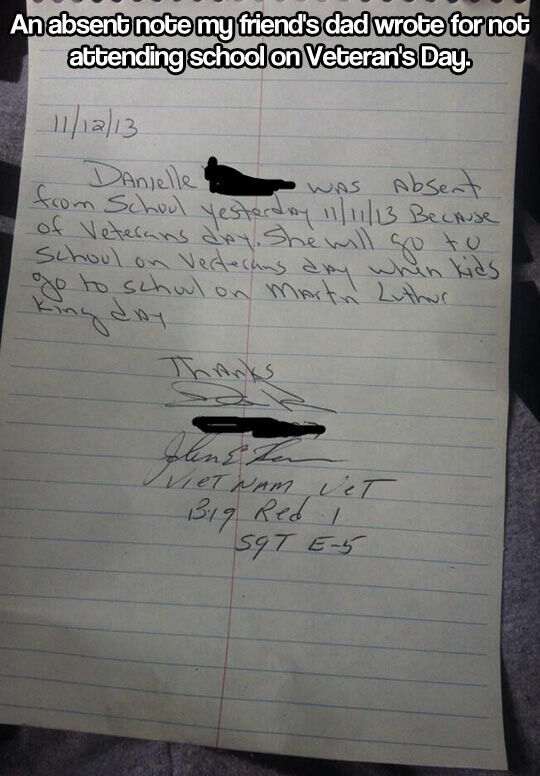 An absent note my friend's dad wrote for not
attending school on Veteran's Day.
11/12/13
Danielle was Absent
from School yesterday 11/11/13 Because
of Veterans day. She will go to
School on Veterans day when kids
go to school on Martn Luthur
King day
Thanks
VIET NAM VET
Big Red 1
SGT E-5